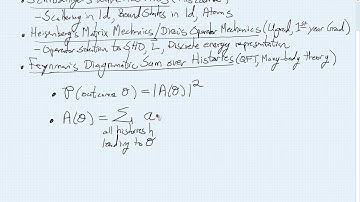 - Scattering in 1d, Bound States in 1d, Atoms
• Heisenberg's Matrix Mechanics/Dirac's Operator Mechanics (Ugrad, 1st year Grad)
- Operator solution to SHO, L, Discrete energy representation
• Feynman's Diagrammatic Sum over Histories (QFT, Many-body theory)
• P(outcome O) = |A(O)|²
• A(O) = ∑ a
all histories h
leading to O